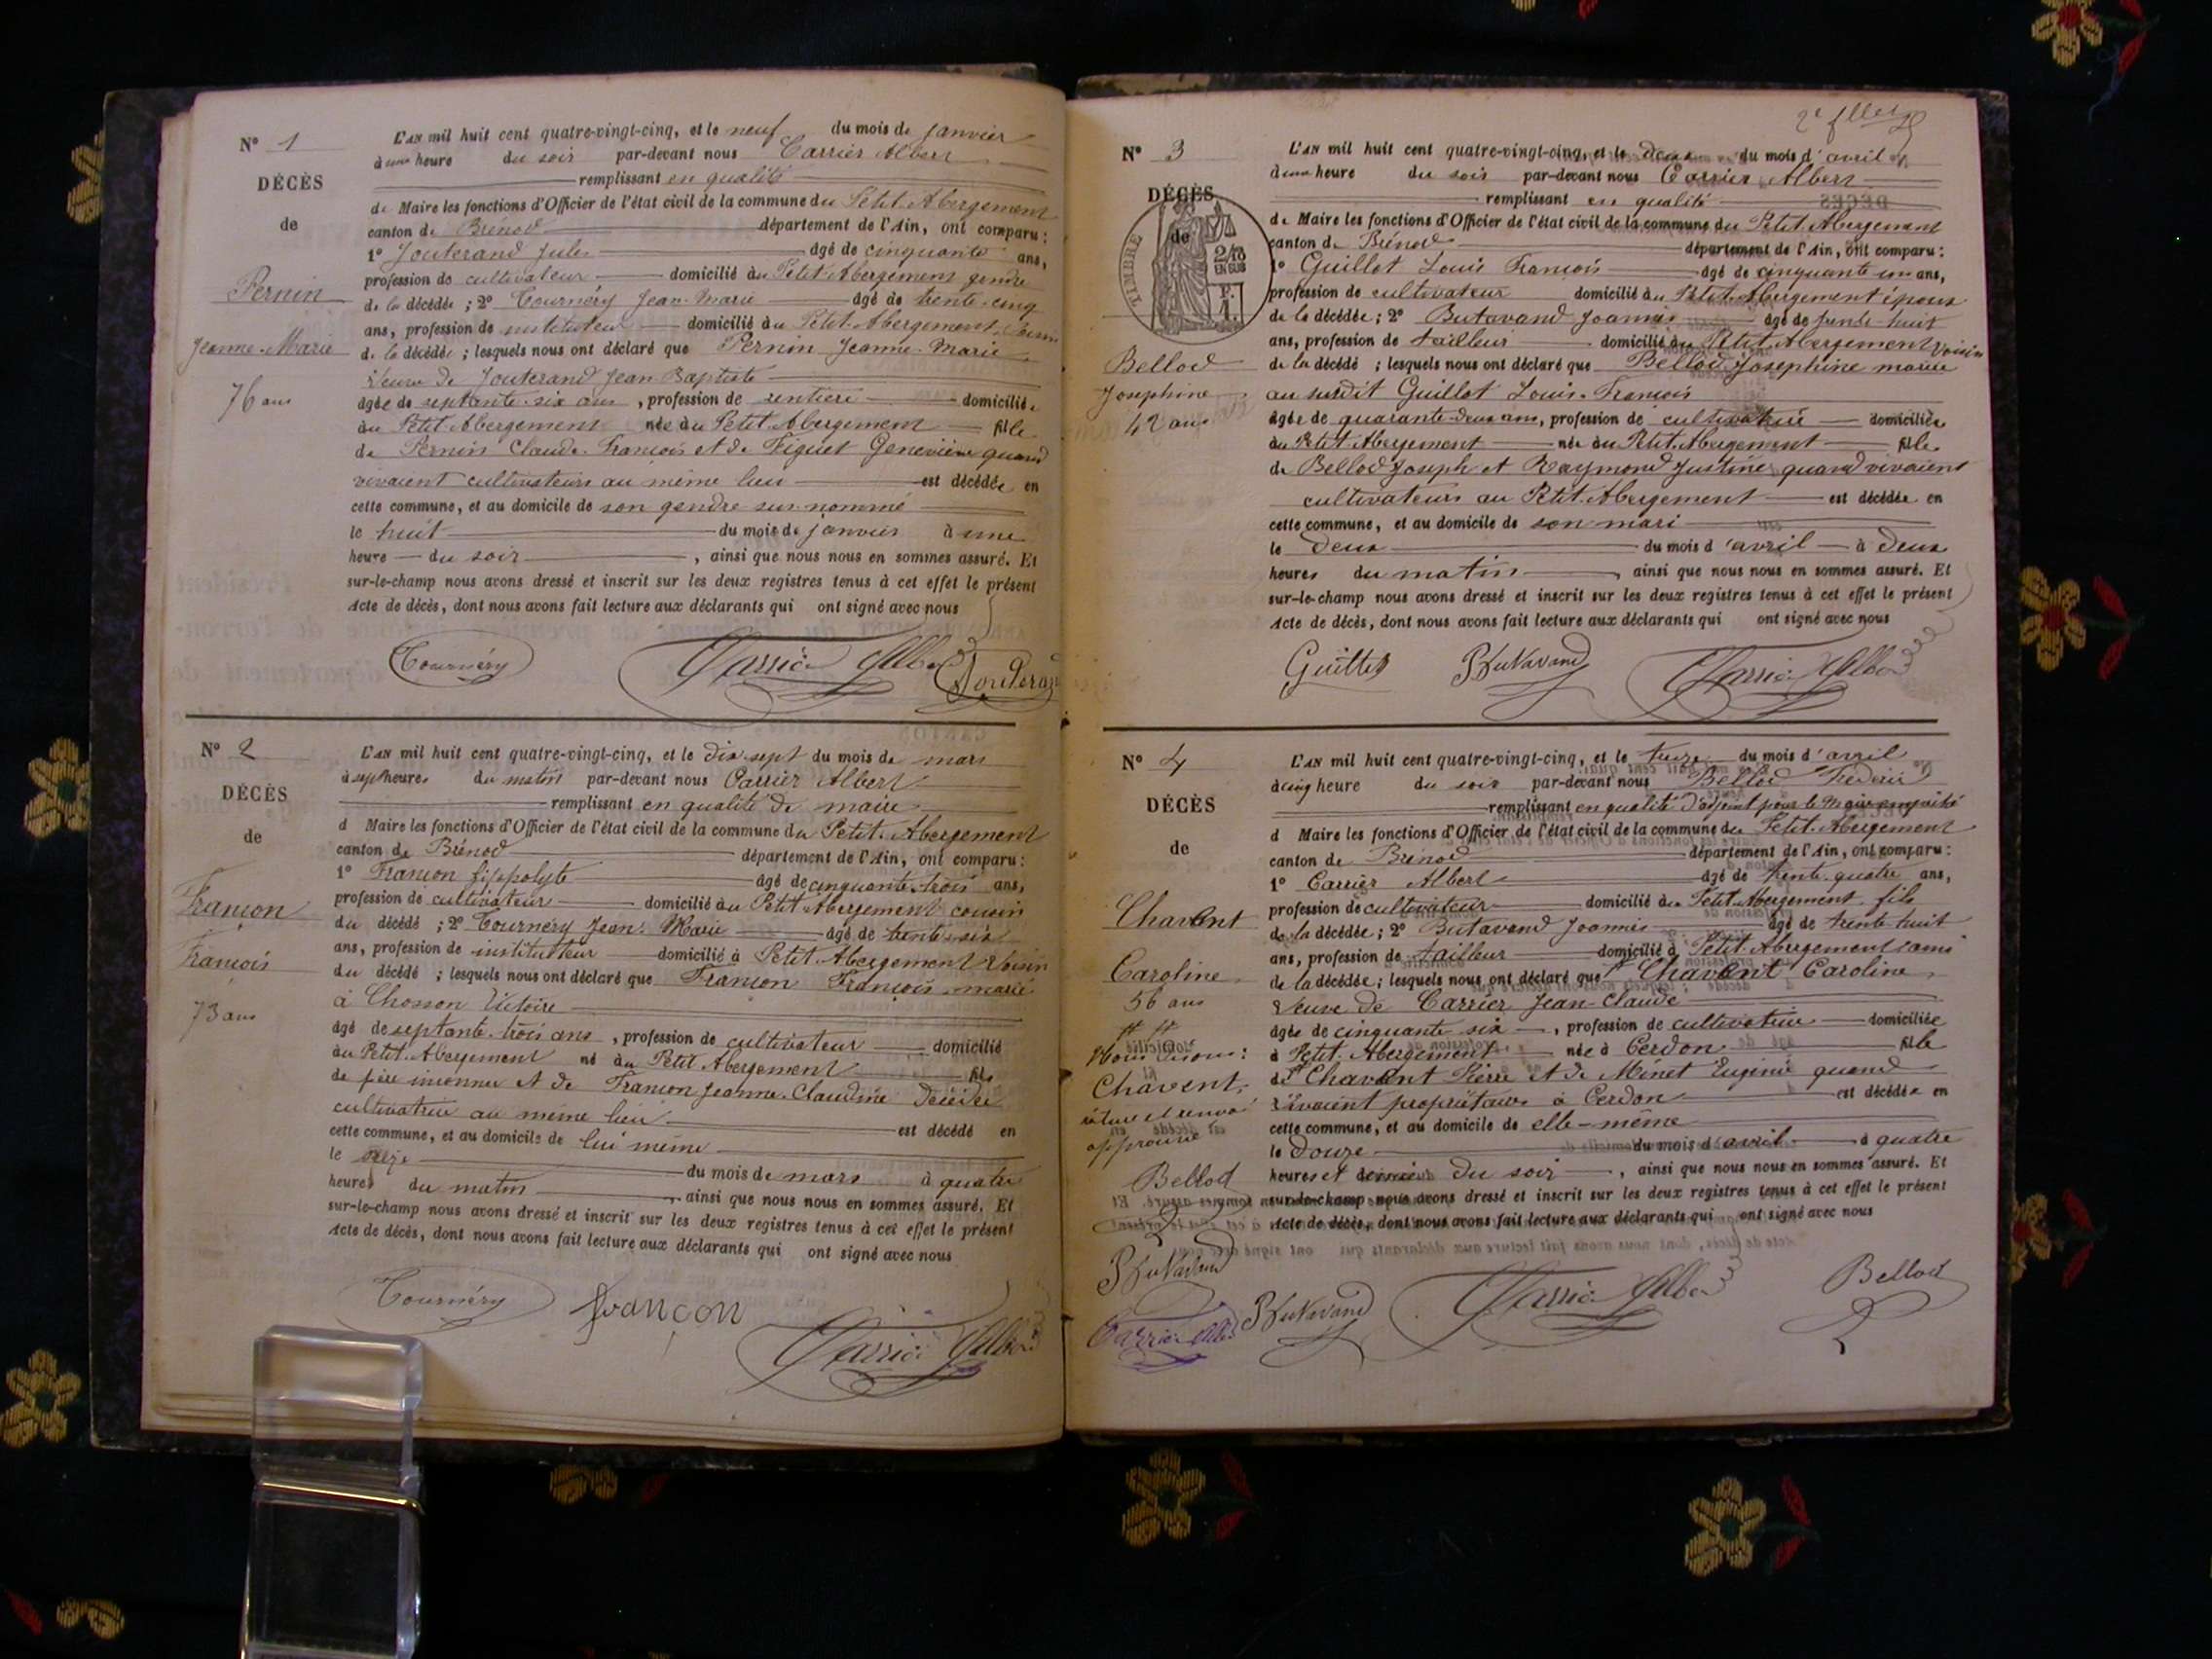 N° 1
DÉCÈS
de
Pernin
Jeanne-Marie
76 ans
L'AN mil huit cent quatre-vingt-cinq, et le neuf du mois de janvier
à une heure du soir par-devant nous Carrier Albert
remplissant en qualité
de Maire les fonctions d'Officier de l'état civil de la commune du Petit Abergement
canton de Brénod département de l'Ain, ont comparu :
1° Jouterand Jules âgé de cinquante ans,
profession de cultivateur domicilié au Petit Abergement gendre
de la décédée ; 2° Tournéry Jean-Marie âgé de trente-cinq
ans, profession de instituteur domicilié au Petit-Abergement voisin
de la décédée ; lesquels nous ont déclaré que Pernin Jeanne-Marie
Veuve de Jouterand Jean-Baptiste
âgée de septante-six ans, profession de rentière domiciliée
au Petit Abergement née au Petit Abergement fille
de Pernin Claude-François et de Figuet Geneviève quand
vivaient cultivateurs au même lieu est décédée en
cette commune, et au domicile de son gendre sus-nommé
le huit du mois de janvier à une
heure du soir, ainsi que nous nous en sommes assuré. Et
sur-le-champ nous avons dressé et inscrit sur les deux registres tenus à cet effet le présent
Acte de décès, dont nous avons fait lecture aux déclarants qui ont signé avec nous
Tournéry Carrier Albert Jouterand
N° 2
DÉCÈS
de
Françon
François
73 ans
L'AN mil huit cent quatre-vingt-cinq, et le dix-sept du mois de mars
à sept heures du matin par-devant nous Carrier Albert
remplissant en qualité de maire
d Maire les fonctions d'Officier de l'état civil de la commune du Petit-Abergement
canton de Brénod département de l'Ain, ont comparu :
1° Françon hippolyte âgé de cinquante-trois ans,
profession de cultivateur domicilié au Petit Abergement cousin
du décédé ; 2° Tournéry Jean-Marie âgé de trente-six
ans, profession de instituteur domicilié à Petit-Abergement Voisin
du décédé ; lesquels nous ont déclaré que Françon François marié
à Chosson Victoire
âgé de septante-trois ans, profession de cultivateur domicilié
au Petit-Abergement né au Petit Abergement fils
de père inconnu et de Françon Jeanne-Claudine décédée
cultivatrice au même lieu est décédé en
cette commune, et au domicile de lui même
le seize du mois de mars à quatre
heures du matin, ainsi que nous nous en sommes assuré. Et
sur-le-champ nous avons dressé et inscrit sur les deux registres tenus à cet effet le présent
Acte de décès, dont nous avons fait lecture aux déclarants qui ont signé avec nous
Tournéry françon Carrier Albert
N° 3
DÉCÈS
de
TIMBRE
Bellod
Josephine
42 ans
L'AN mil huit cent quatre-vingt-cinq, et le deux du mois d'avril
à une heure du soir par-devant nous Carrier Albert
remplissant en qualité
de Maire les fonctions d'Officier de l'état civil de la commune du Petit Abergement
canton de Brénod département de l'Ain, ont comparu :
1° Guillot Louis François âgé de cinquante un ans,
profession de cultivateur domicilié au Petit-Abergement époux
de la décédée ; 2° Butavand Joannis âgé de trente huit
ans, profession de tailleur domicilié au Petit Abergement Voisin
de la décédé ; lesquels nous ont déclaré que Bellod Josephine mariée
au susdit Guillot Louis-François
âgée de quarante-deux ans, profession de cultivatrice domiciliée
au Petit Abergement née au Petit-Abergement fille
de Bellod Joseph et Raymond Justine quand vivaient
cultivateurs au Petit-Abergement est décédée en
cette commune, et au domicile de son mari
le deux du mois d'avril à deux
heures du matin, ainsi que nous nous en sommes assuré. Et
sur-le-champ nous avons dressé et inscrit sur les deux registres tenus à cet effet le présent
Acte de décès, dont nous avons fait lecture aux déclarants qui ont signé avec nous
Guillot Butavand Carrier Albert
N° 4
DÉCÈS
de
Chavent
Caroline
56 ans
Nous disons :
Chavent,
rature et renvoi
approuvé
Bellod
Butavand
Carrier Albert
L'AN mil huit cent quatre-vingt-cinq, et le treize du mois d'avril
à cinq heure du soir par-devant nous Bellod Frédéric
remplissant en qualité d'adjoint pour le Maire empêché
d Maire les fonctions d'Officier de l'état civil de la commune du Petit-Abergement
canton de Brénod département de l'Ain, ont comparu :
1° Carrier Albert âgé de trente-quatre ans,
profession de cultivateur domicilié au Petit-Abergement fils
de la décédée ; 2° Butavand Joannis âgé de trente huit
ans, profession de tailleur domicilié à Petit-Abergement ami
de la décédée ; lesquels nous ont déclaré que Chavent Caroline
Veuve de Carrier Jean-Claude
âgée de cinquante six, profession de cultivatrice domiciliée
à Petit-Abergement née à Cerdon fille
de Chavent Pierre et de Minet Eugénie quand
vivaient propriétaires à Cerdon est décédée en
cette commune, et au domicile de elle-même
le douze du mois d'avril à quatre
heures et demie du soir, ainsi que nous nous en sommes assuré. Et
sur-le-champ nous avons dressé et inscrit sur les deux registres tenus à cet effet le présent
Acte de décès, dont nous avons fait lecture aux déclarants qui ont signé avec nous
Butavand Carrier Albert Bellod